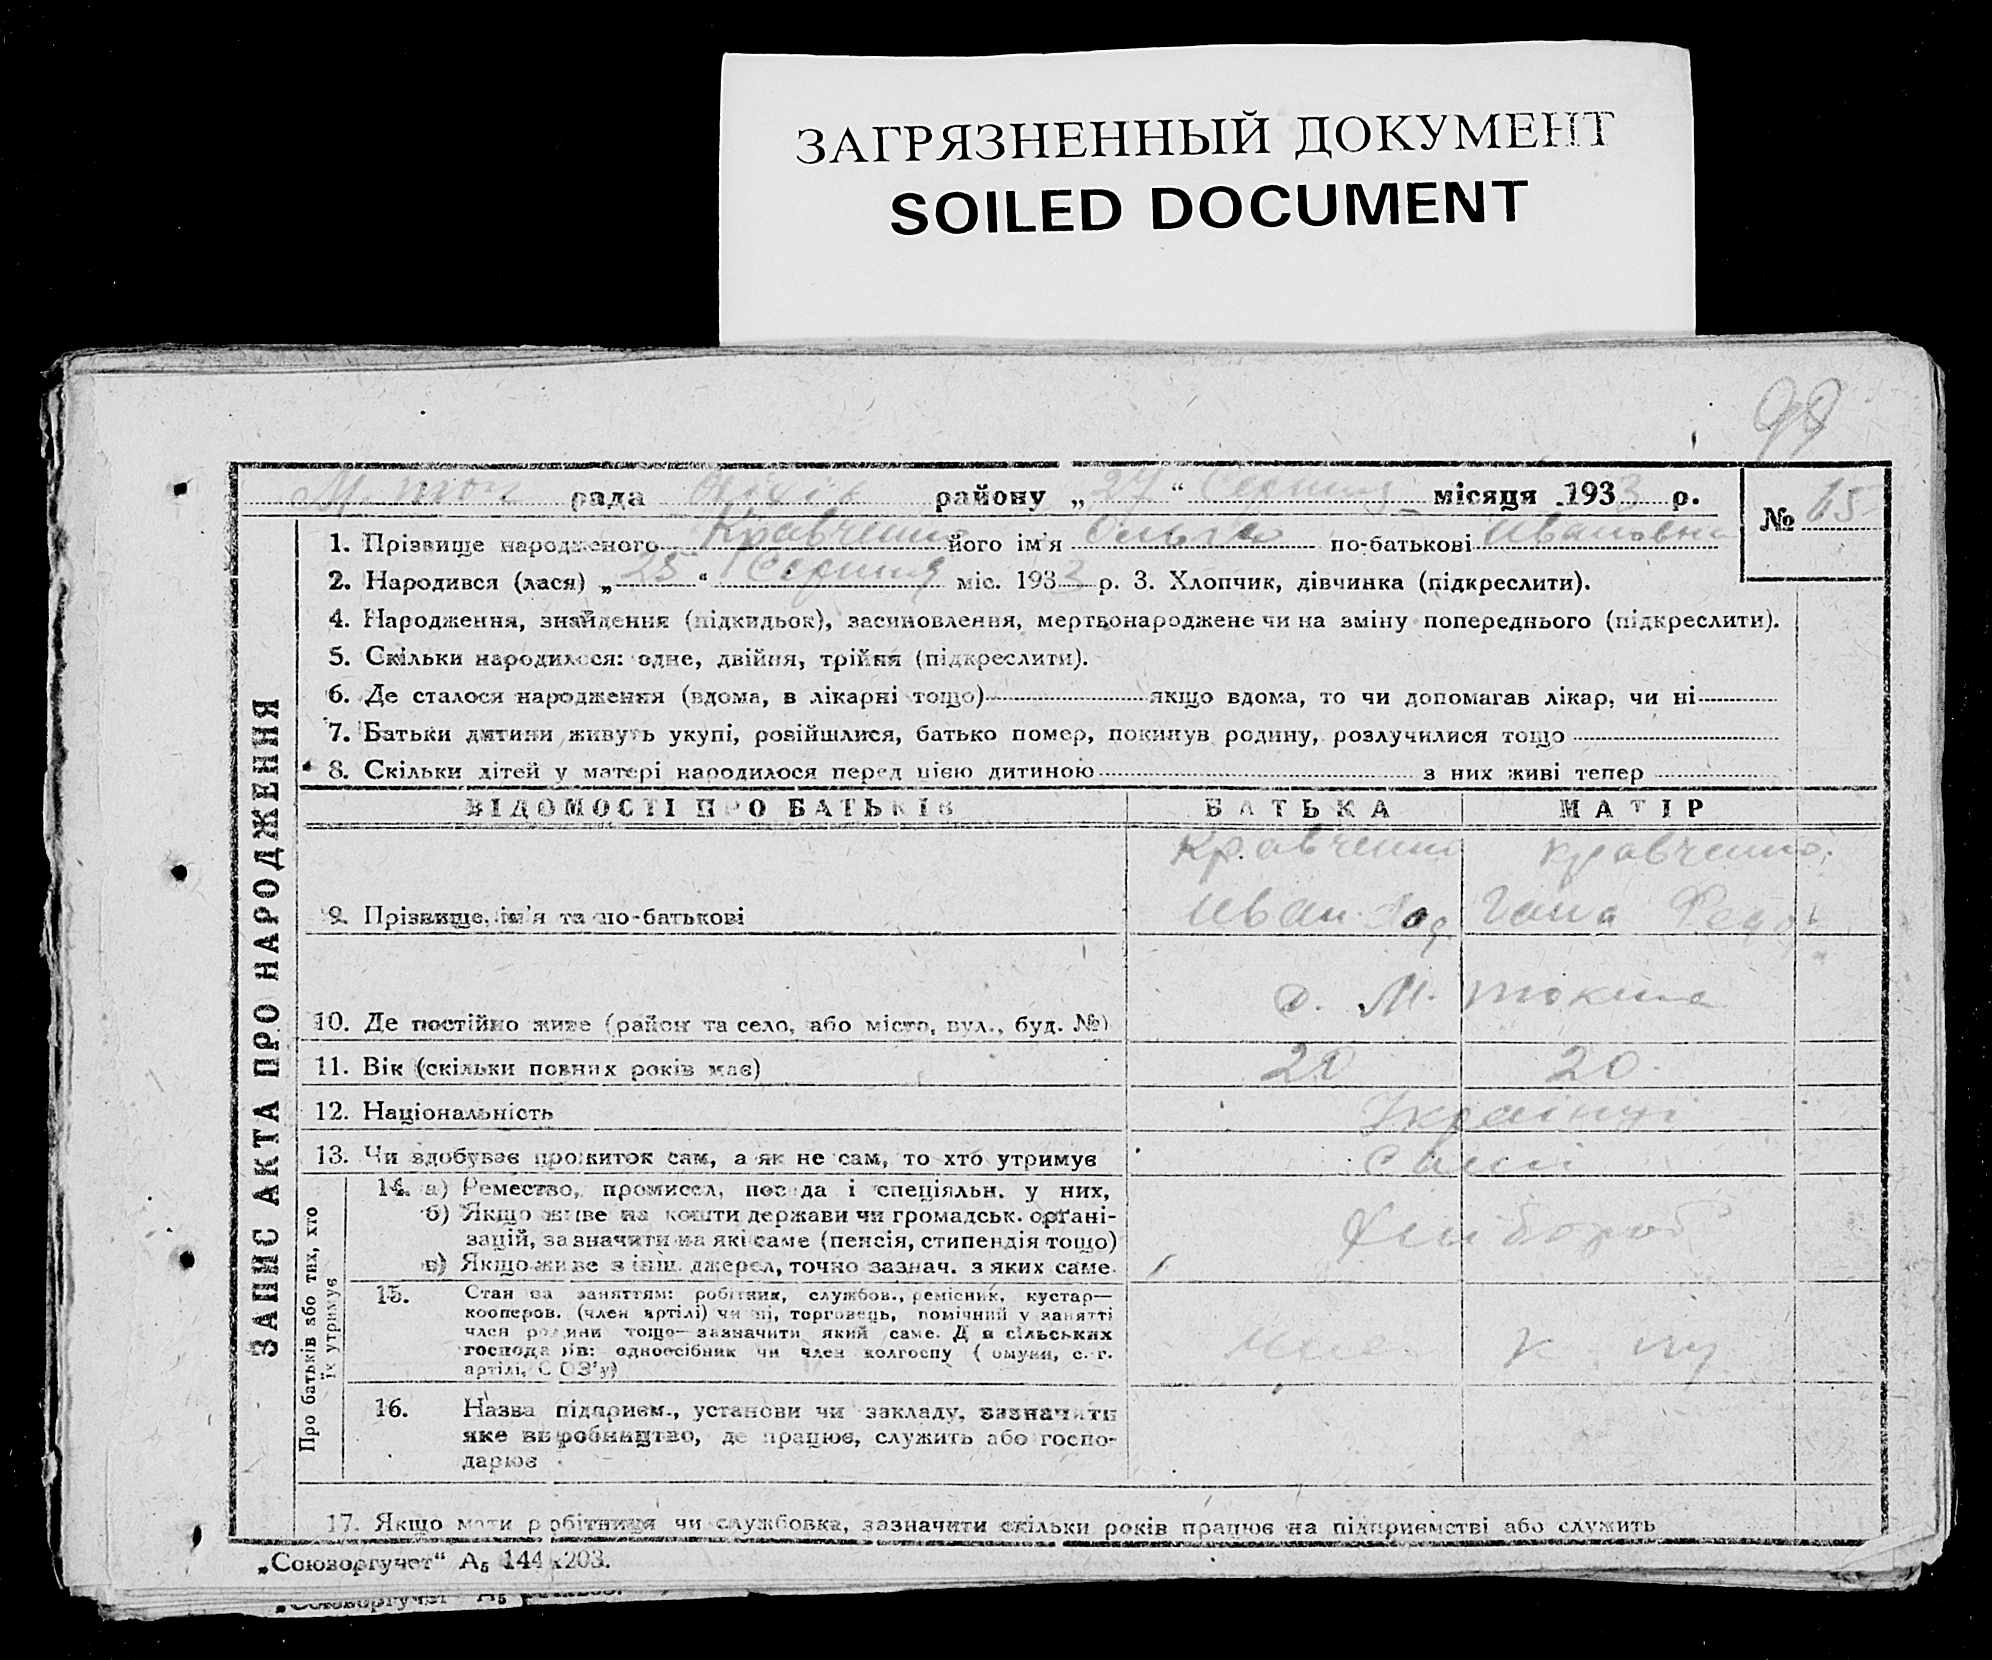 ЗАГРЯЗНЕННЫЙ ДОКУМЕНТ
SOILED DOCUMENT
98
рада району „ 27 “ Серпня місяця 1933 р.
№ 15
1. Прізвище народженого Кравченко його ім'я Ольга по-батькові Ивановна
2. Народився (лася) „ 25 “ Серпня міс. 1933 р. 3. Хлопчик, дівчинка (підкреслити).
4. Народження, знайдення (підкидьок), засиновлення, мертвонароджене чи на зміну попереднього (підкреслити).
5. Скільки народилося: одне, двійня, трійня (підкреслити).
6. Де сталося народження (вдома, в лікарні тощо) якщо вдома, то чи допомагав лікар, чи ні
7. Батьки дитини живуть укупі, розійшлися, батько помер, покинув родину, розлучилися тощо
8. Скільки дітей у матері народилося перед цією дитиною з них живі тепер
ВІДОМОСТІ ПРО БАТЬКІВ БАТЬКА МАТІР
Кравченко Кравченко
9. Прізвище, ім'я та по-батькові Иван Гана Федор
10. Де постійно живе (район та село, або місто, вул., буд. №) с. М. Токма
11. Вік (скільки повних років має) 20 20
12. Національність Українці
13. Чи здобуває прожиток сам, а як не сам, то хто утримує сами
14. а) Ремество, промисел, посада і спеціяльн. у них,
б) Якщо живе на кошти держави чи громадськ. органі-
зацій, зазначити на які саме (пенсія, стипендія тощо) Хлибороб
в) Якщо живе з інш. джерел, точно зазнач. з яких саме
15. Стан за заняттям: робітник, службов., ремісник, кустар—
кооперов. (член артілі) чи ні, торговець, помічний у занятті
член родини тощо—зазначити який саме. Для сільських
господарів: одноосібник чи член колгоспу (комуни, с.-г.
артілі, СОЗ'у)
16. Назва підприєм., установи чи закладу, зазначити
яке виробництво, де працює, служить або госпо-
дарює
17. Якщо мати робітниця чи службовка, зазначити скільки років працює на підприємстві або служить
ЗАПИС АКТА ПРО НАРОДЖЕННЯ
Про батьків або тих, хто
їх утримує
„Союзоргучет“ А₅ 144х203.
„Союзоргучет“ А₅